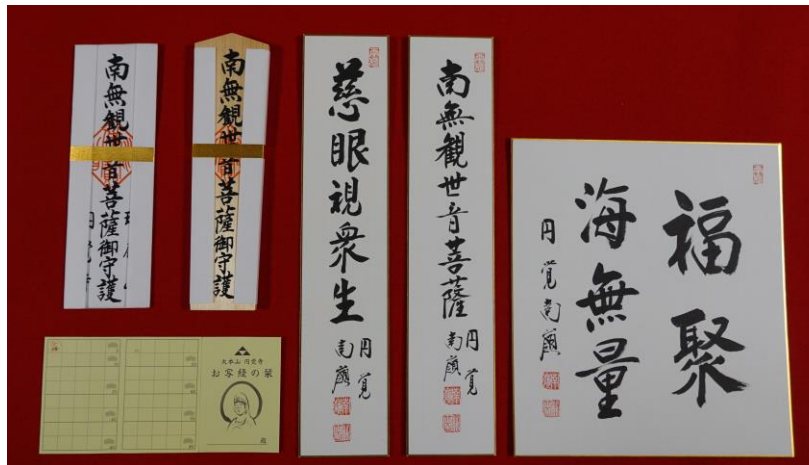 南無観世音菩薩御守護
円覚寺
南無観世音菩薩御守護
慈眼視衆生
円覚
南嶺
南無観世音菩薩
円覚
南嶺
福聚
海無量
円覚南嶺
大本山 円覚寺
お客様の栞
殿